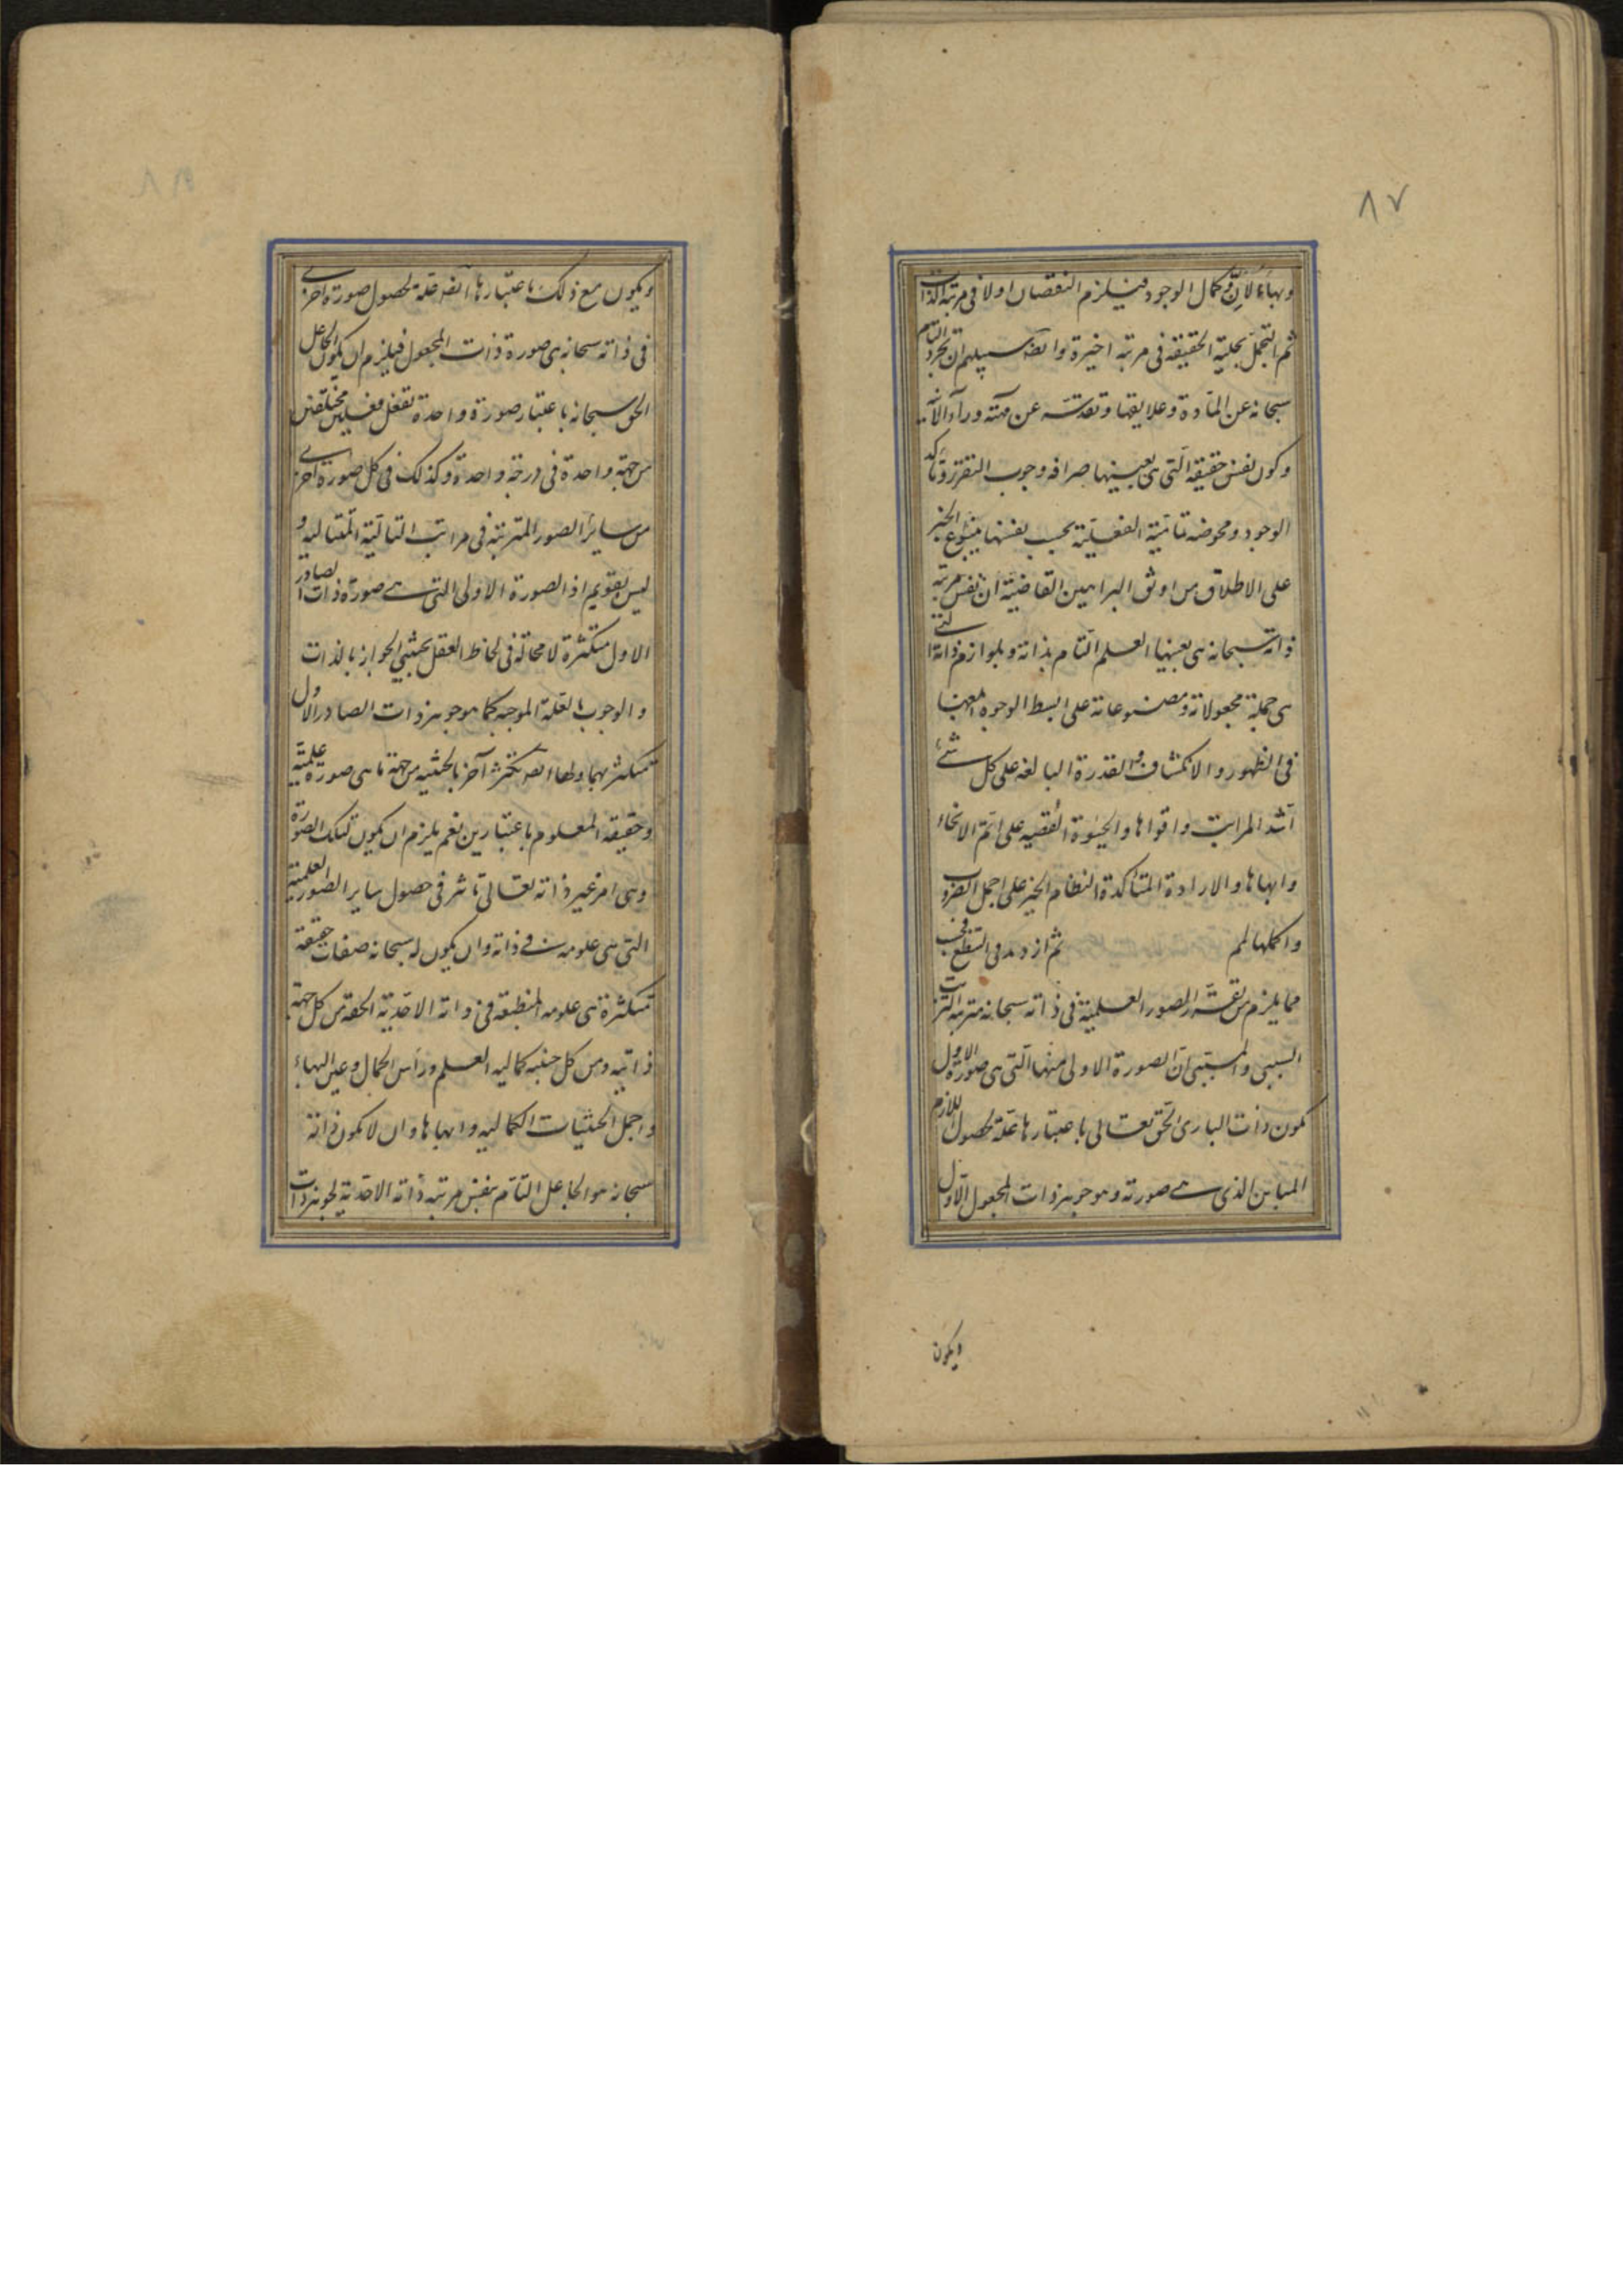 ٨٧
وبهاء لانّ وكمال الوجود فيلزم النقصان اولا فى مرتبة الذات
ثم التجمل بحلية الحقيقة فى مرتبة اخيرة وايضا سبيلهم ان تجرده التام
سبحانه عن المادة وعلايقها وتقدسه عن مهية وراء الانية
وكون نفس حقيقة التى هى بعينها صرافة وجوب التقرر وتاكد
الوجود ومحوضة تمامية الفعلية بحسب نفسها ينبوع الخير
على الاطلاق من اوثق البراهين القاضية ان نفس مرتبة
ذاته سبحانه هى بعينها العلم التام بذاته وبلوازم ذاته التى
هى جملة مجعولاته ومصنوعاته على ابسط الوجوه
فى الظهور والانكشاف والقدرة البالغة على كل شئ
اشد المراتب واقواها والحيوة على اتم الانحاء
وابهاها والارادة المتاكدة لنظام الخير على اجمل الضروب
واكملها لهم ثم ازدد فى
مما يلزم من تقرر الصور العلمية فى ذاته سبحانه مترتبة الترتيب
السببى والمسببى ان الصورة الاولى منها التى هى صورة الاول
تكون ذات البارئ الحق تعالى باعتبارها علة لحصول اللازم
المباين الذى هى صورته وهو جوهر ذات المجعول الاول
ويكون
ويكون مع ذلك باعتبارها ايضا علة لحصول صورة اخرى
فى ذاته سبحانه هى صورة ذات المجعول فيلزم ان يكون الجاعل
الحق سبحانه باعتبار صورة واحدة تفعل فعلين مختلفين
من جهة واحدة فى درجة واحدة وكذلك فى كل صورة اخرى
من ساير الصور المترتبة فى مراتب التالية المتتالية و
ليس بقويم اذ الصورة الاولى التى هى صورة ذات الصادر
الاول متكثرة لا محالة فى لحاظ العقل بحيثيتى الجواز بالذات
والوجوب بالعلة الموجبة كما هو جوهر ذات الصادر الاول
متكثر بهما ولها ايضا تكثر آخر بالحيثية من جهة ما هى صورة علمية
وحقيقة المعلوم باعتبارين نعم يلزم ان يكون لتلك الصورة
وهى امر غير ذاته تعالى تاثير فى حصول ساير الصور العلمية
التى هى علومه فى ذاته وان يكون له سبحانه صفات حقيقة
متكثرة هى علومه المنطبعة فى ذاته الاحدية الحقة من كل جهة
ذاتية ومن كل حيثية كمالية العلم وراس الكمال وعين البهاء
واجمل الحيثيات الكمالية وابهاها وان لا تكون ذاته
سبحانه هو الجاعل التام بنفس مرتبة ذاته الاحدية لجوهر ذات